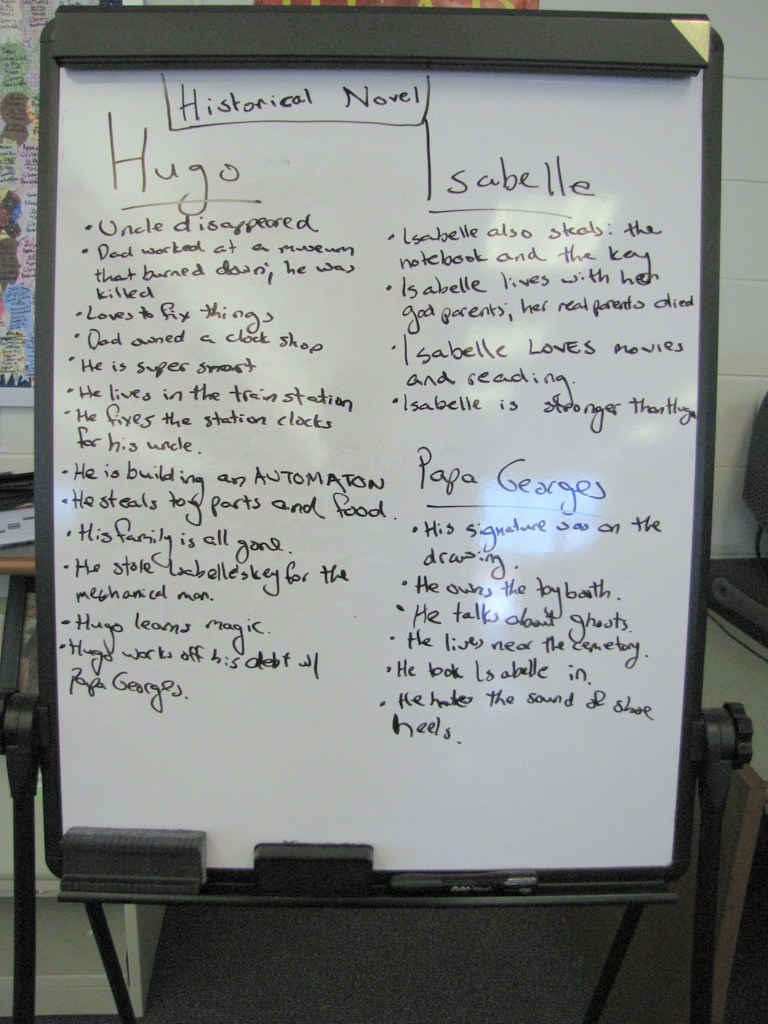 Historical Novel
Hugo
• Uncle disappeared
• Dad worked at a museum
that burned down; he was
killed
• Loves to fix things
• Dad owned a clock shop
• He is super smart
• He lives in the train station
• He fixes the station clocks
for his uncle.
• He is building an AUTOMATON
• He steals toy parts and food.
• His family is all gone.
• He stole Isabelle's key for the
mechanical man.
• Hugo learns magic.
• Hugo works off his debt w/
Papa Georges.
Isabelle
• Isabelle also steals: the
notebook and the key
• Isabelle lives with her
god parents; her real parents died
• Isabelle LOVES movies
and reading.
• Isabelle is stronger than Hugo
Papa Georges
• His signature was on the
drawing.
• He owns the toy booth.
• He talks about ghosts.
• He lives near the cemetery.
• He took Isabelle in.
• He hates the sound of shoe
heels.